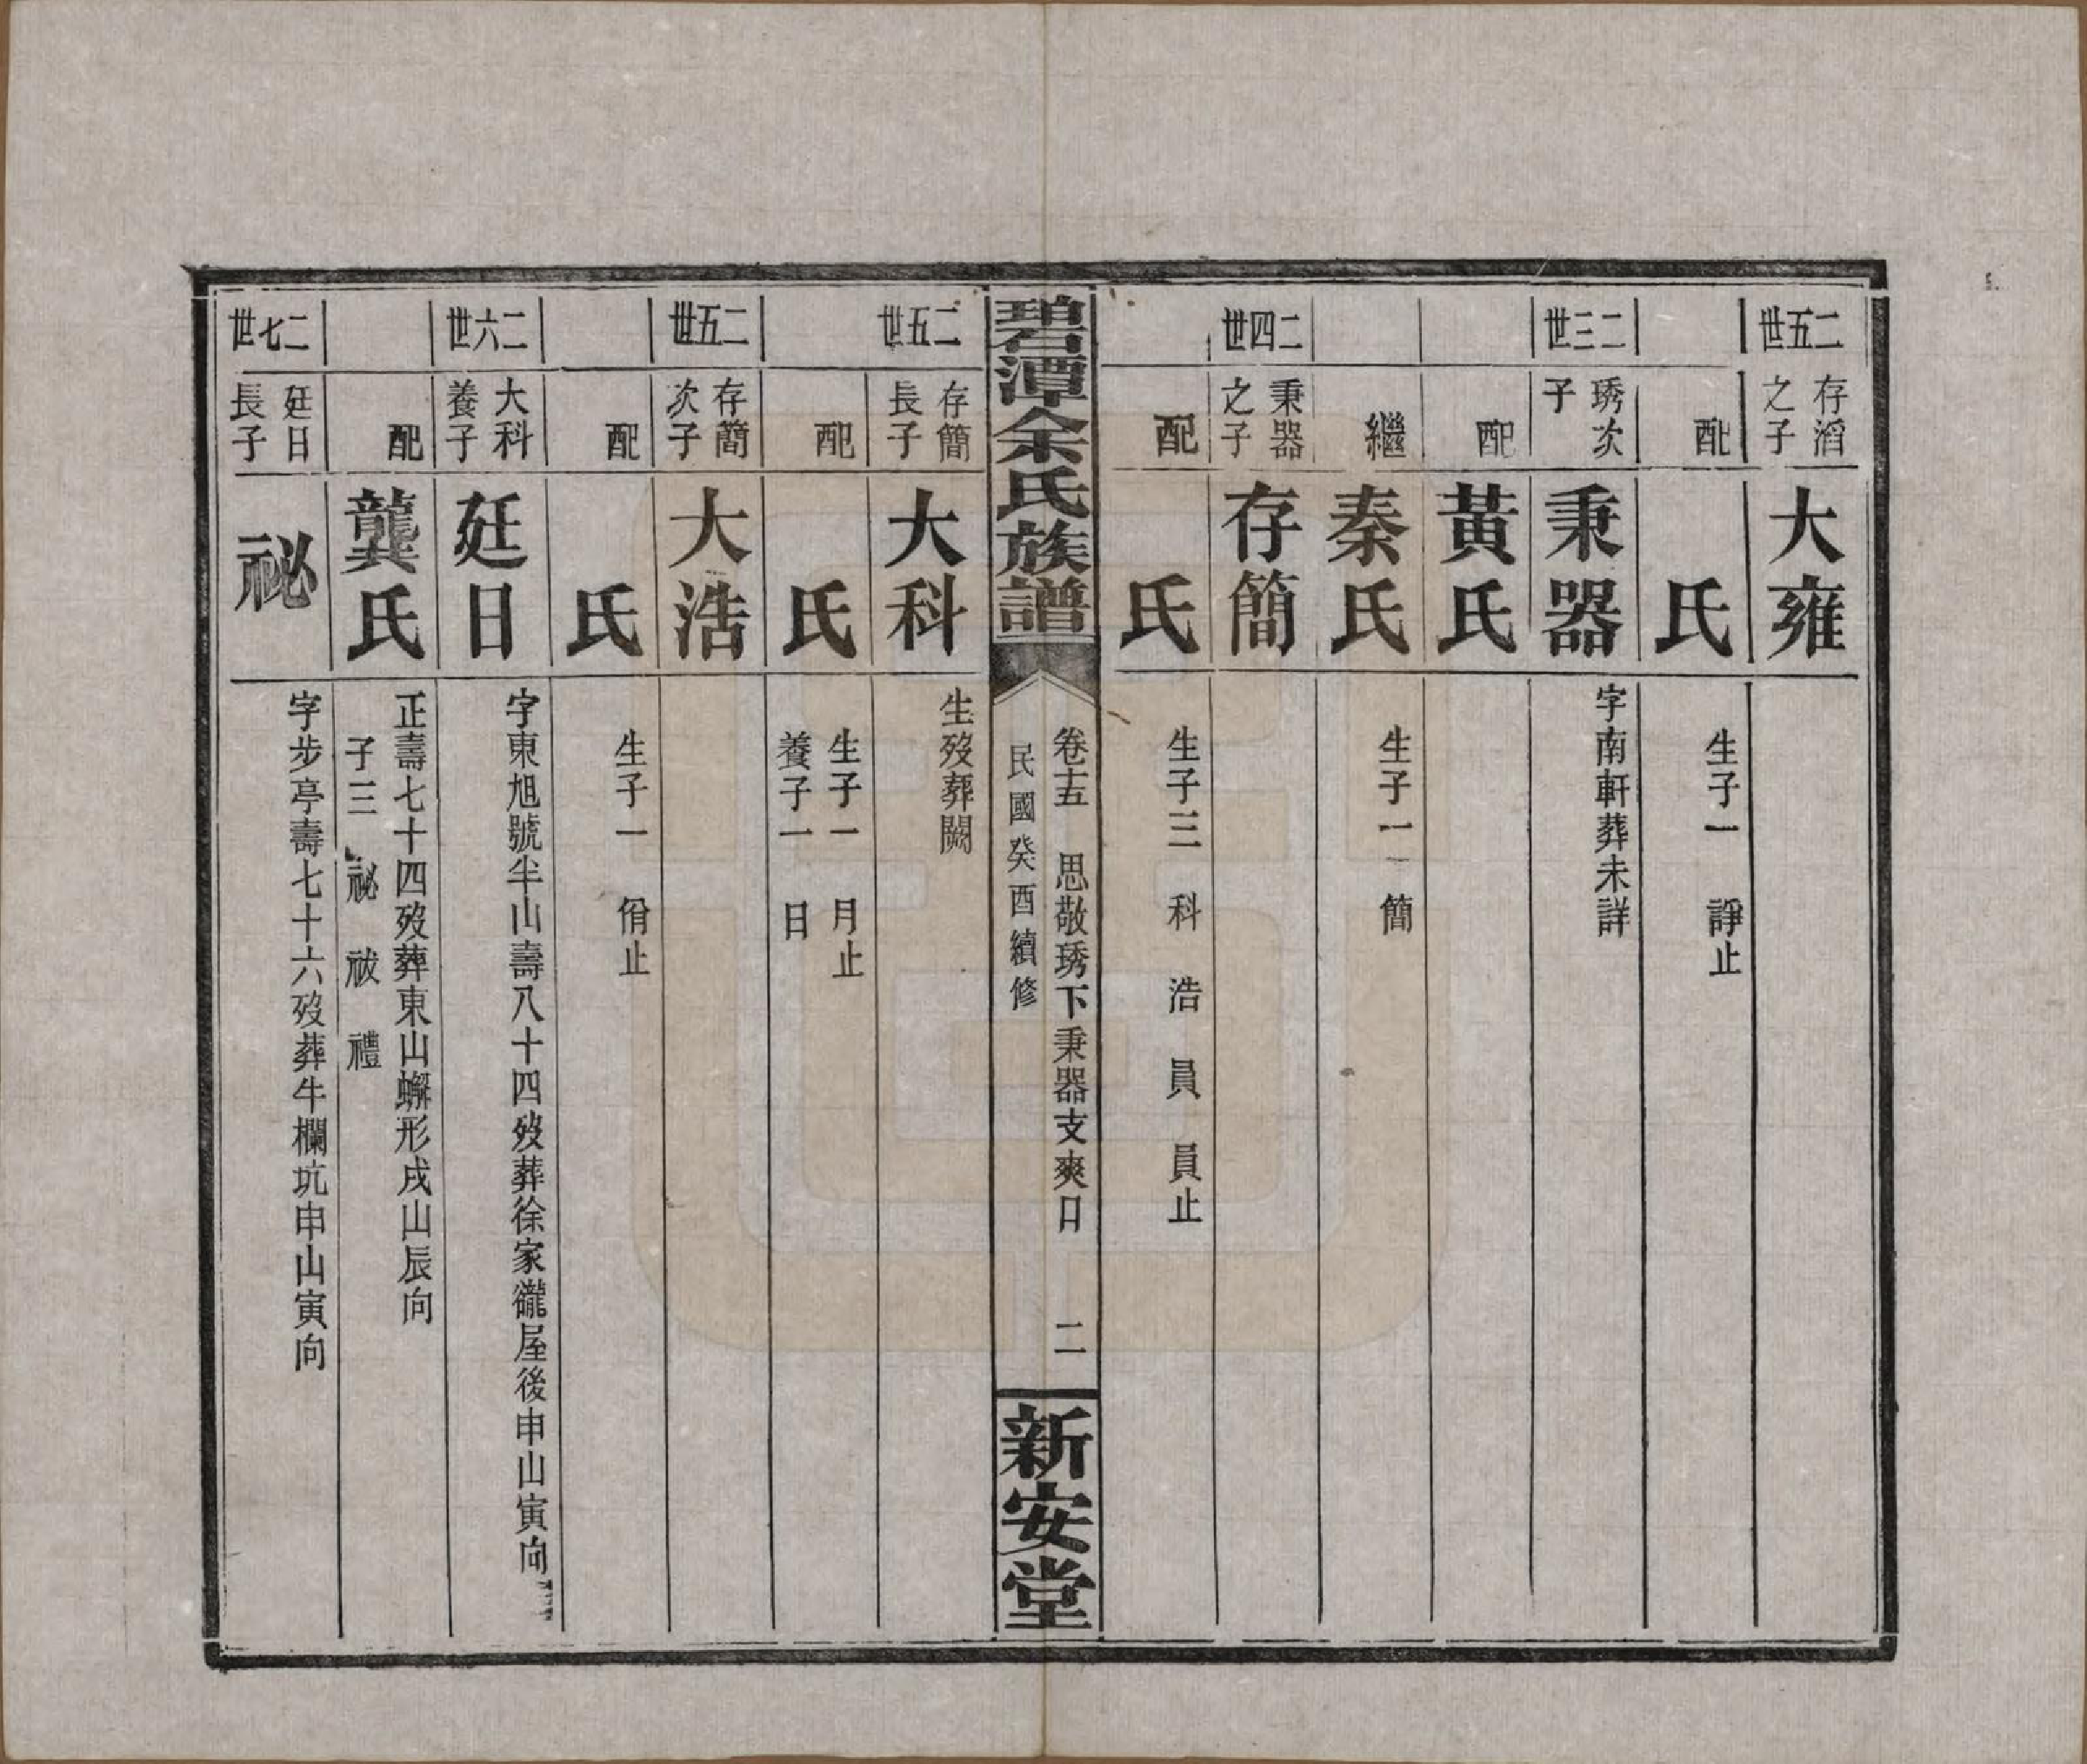 二五世
存滔之子
大雍
配
氏
生子一　諍止
二三世
琇次子
秉器
字南軒葬未詳
配
黃氏
繼
秦氏
生子一　簡
二四世
秉器之子
存簡
配
氏
生子三　科　浩　員　員止
碧潭余氏族譜
卷十五　思敬琇下秉器支爽口　二
民國癸酉續修
新安堂
二五世
存簡長子
大科
生歿葬闕
配
氏
生子一　月止
養子一　日
二五世
存簡次子
大浩
配
氏
生子一　佾止
二六世
大科養子
廷日
字東旭號半山壽八十四歿葬徐家巃屋後申山寅向
配
龔氏
正壽七十四歿葬東山蠏形戌山辰向
子三　祕　祓　禮
二七世
廷日長子
祕
字步亭壽七十六歿葬牛欄坑申山寅向